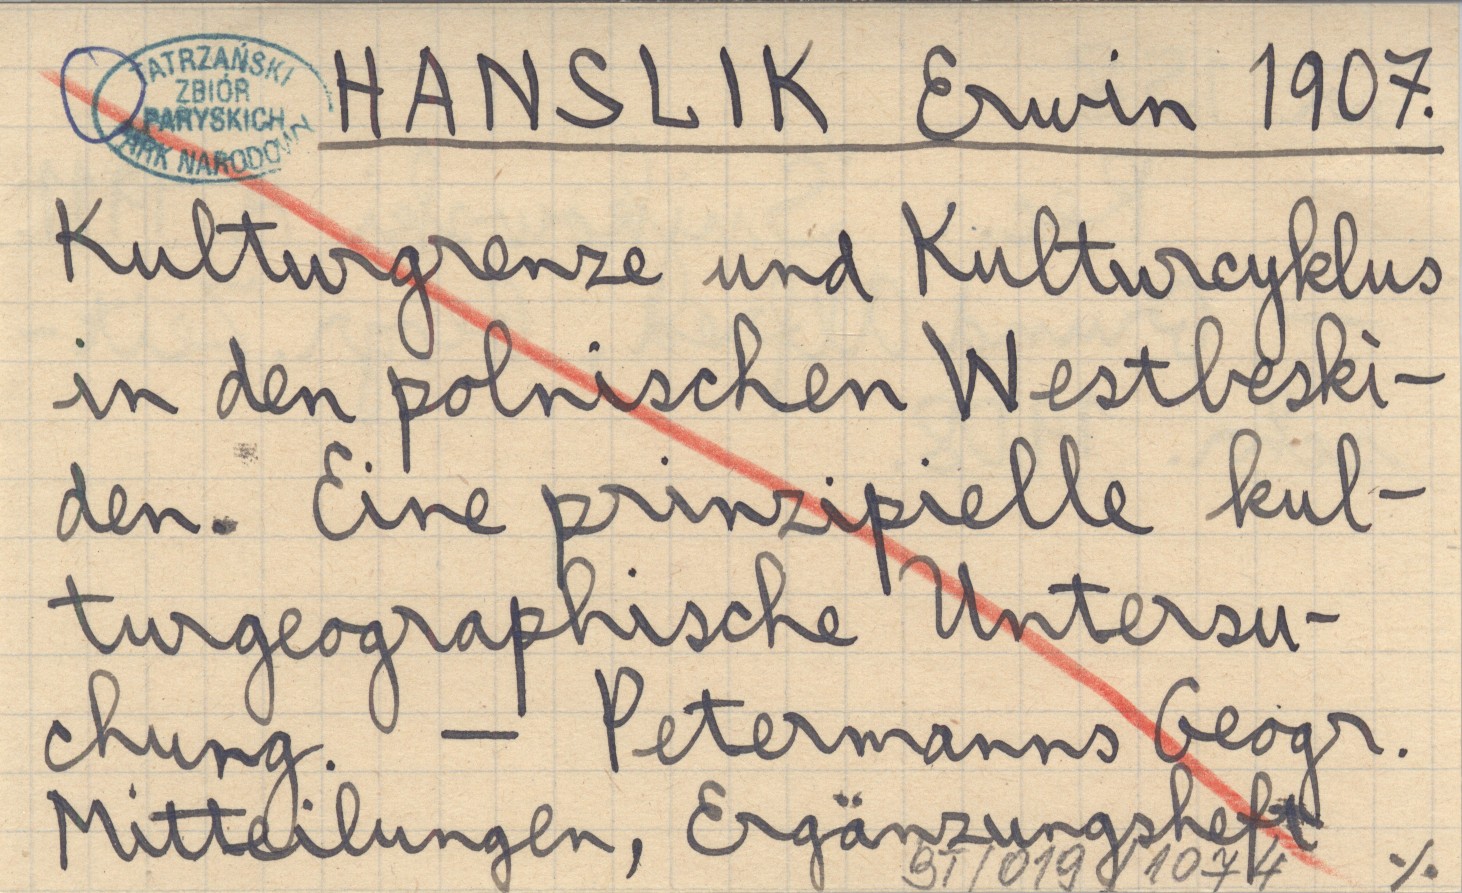 TATRZAŃSKI
ZBIÓR
PARYSKICH
PARK NARODOWY
HANSLIK Erwin 1907.
Kulturgrenze und Kulturcyklus
in den polnischen Westbeski-
den. Eine prinzipielle kul-
turgeographische Untersu-
chung. — Petermanns Geogr.
Mitteilungen, Ergänzungsheft
BT/019/1074 ·/.